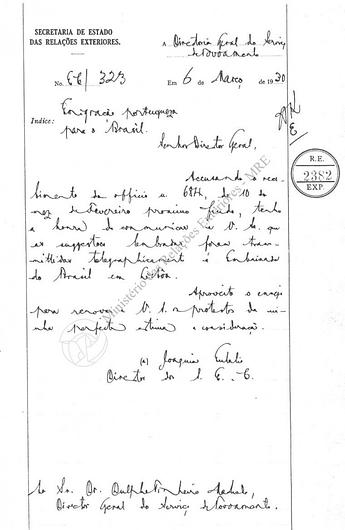 SECRETARIA DE ESTADO
DAS RELAÇÕES EXTERIORES.
A Directoria Geral do Serviço
de Povoamento
No. EC/ 323
Em 6 de Março de 1930
Indice: Emigração portugueza
para o Brasil.
Senhor Director Geral,
R.E.
2382
EXP.
Accusando o rece-
bimento do officio n. 687, de 10 do
mez de Fevereiro proximo findo, tenho
a honra de communicar a V. S. que
as suggestões foram trans-
mittidas telegraphicamente á Embaixada
do Brasil em Lisbôa.
Aproveito o ensejo
para renovar a V. S. os protestos da mi-
nha perfeita estima e consideração.
(a) Joaquim Eulalio
Director dos S. E. C.
Ao Sr. Dr. Dulphe Pinheiro Machado,
Director Geral do Serviço de Povoamento.
Ministério das Relações Exteriores - MRE